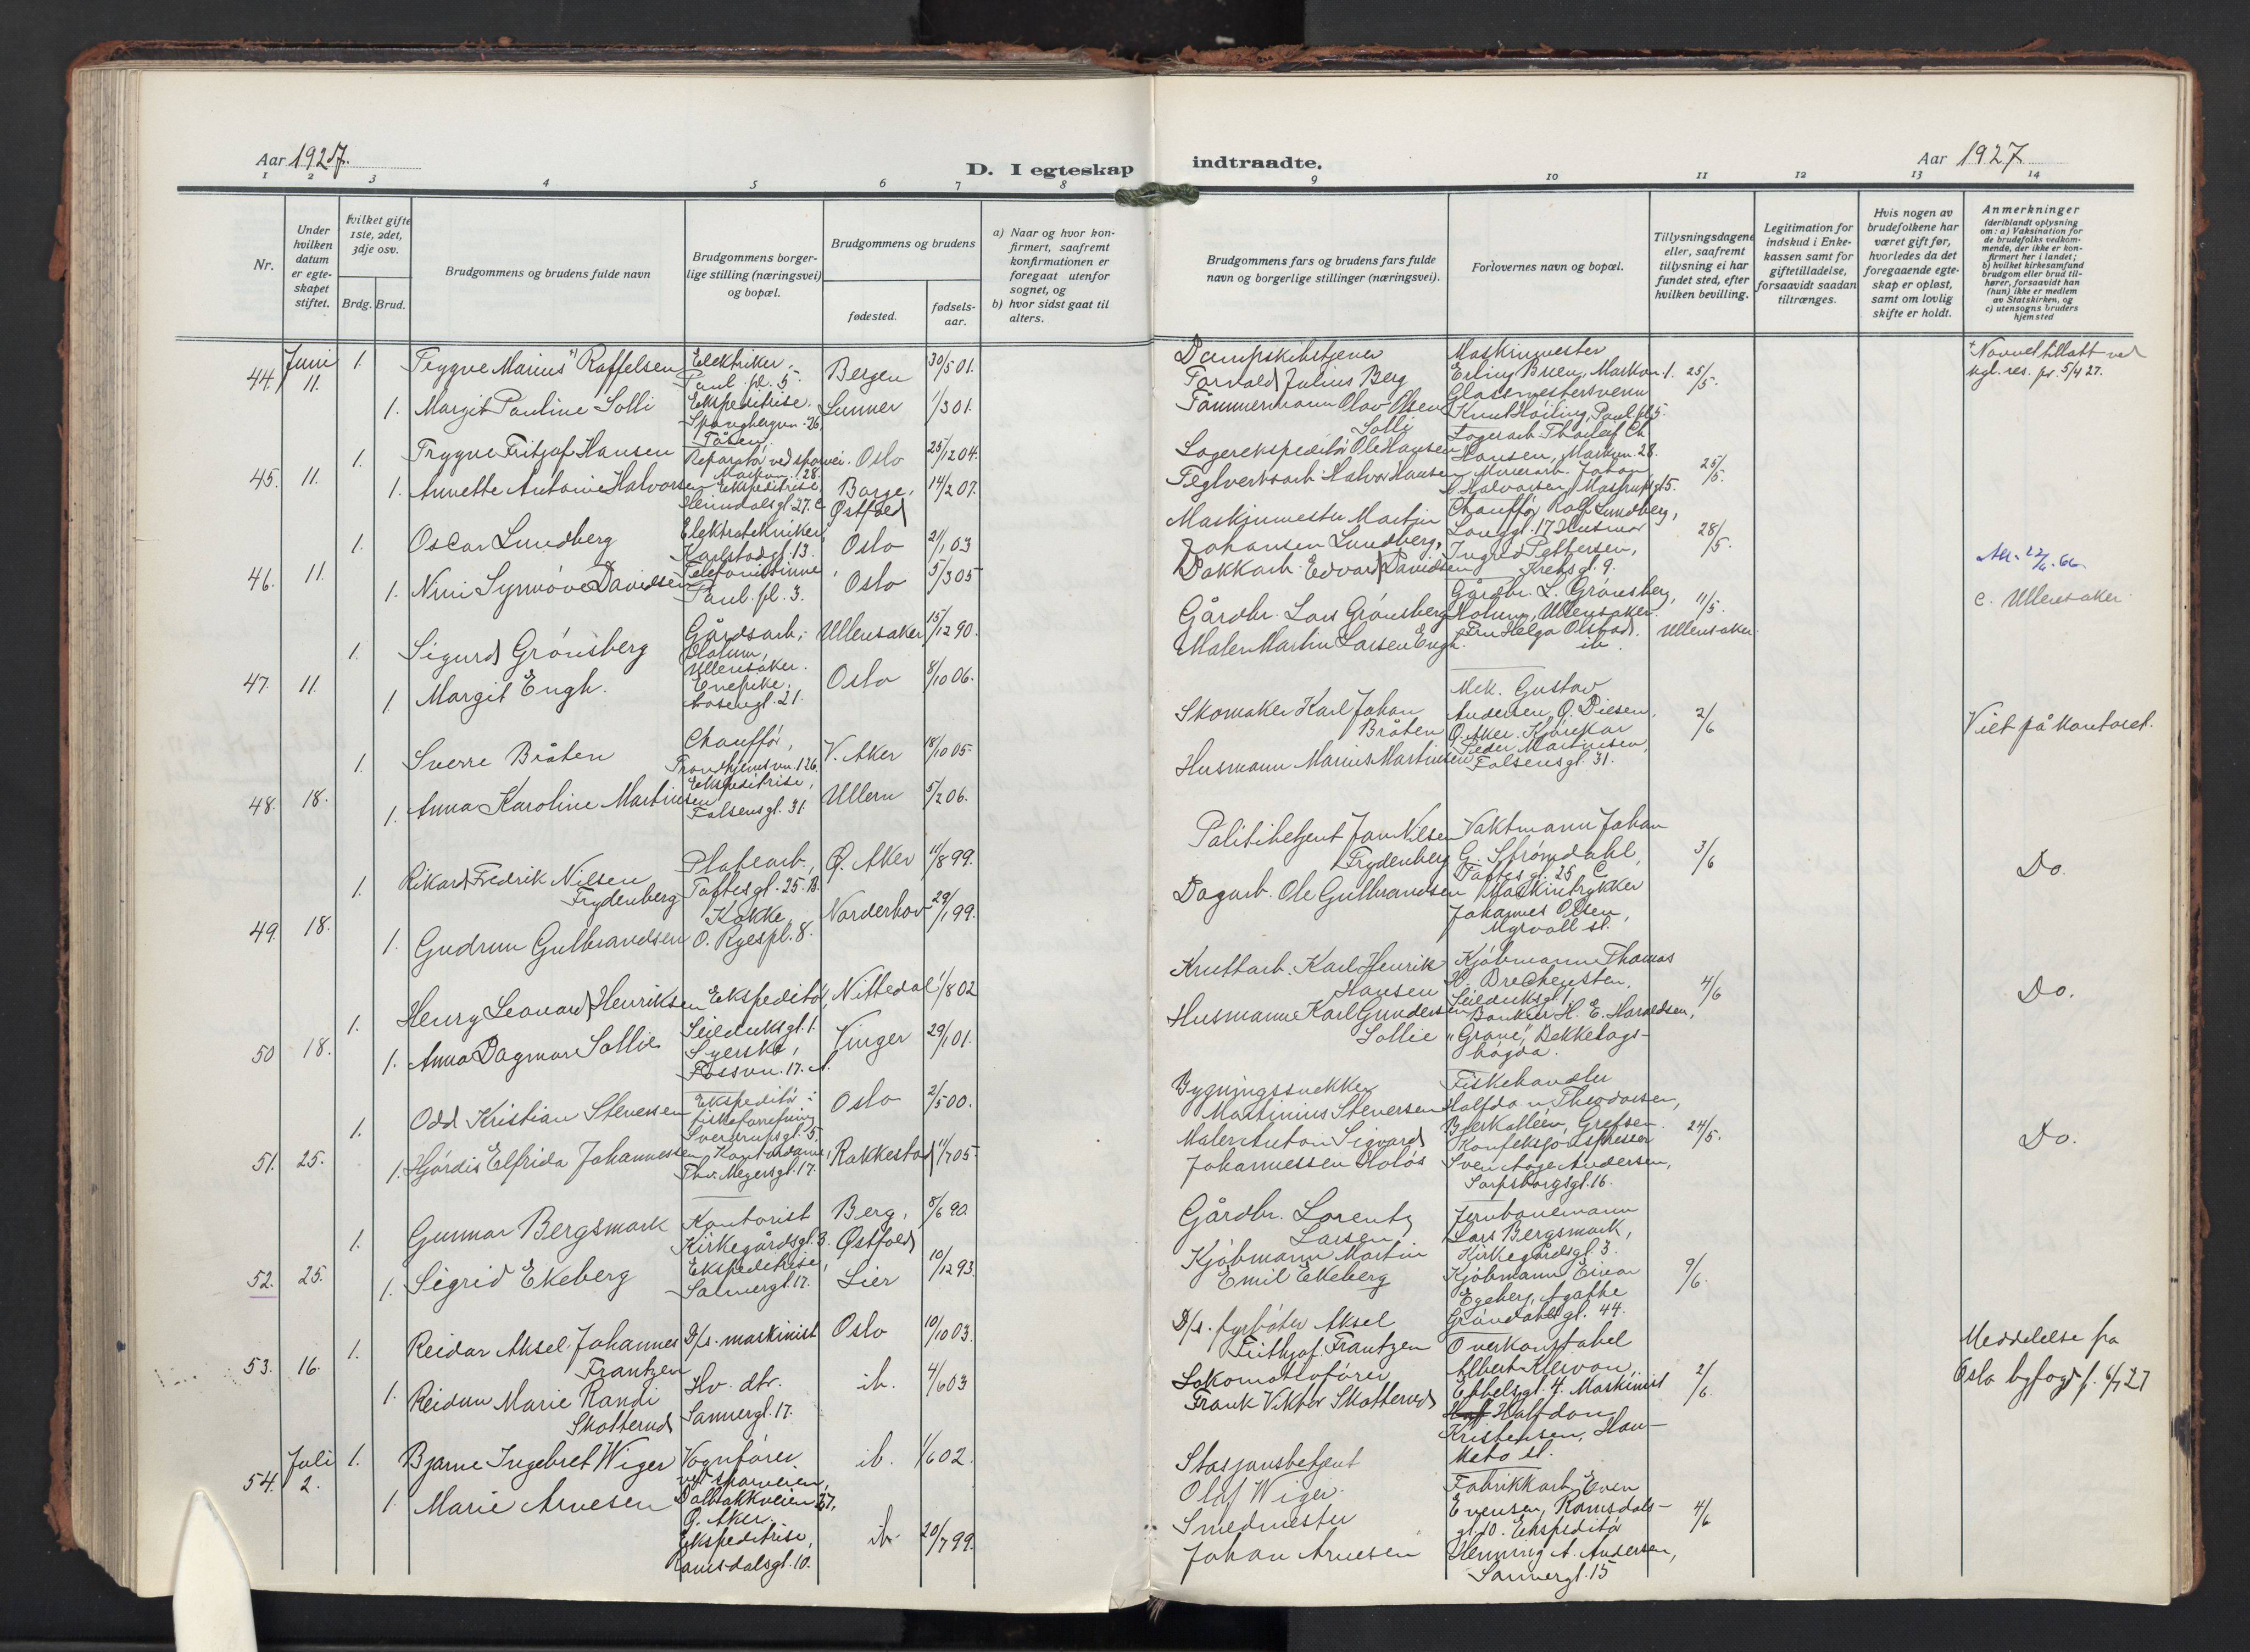 Aar 1927.
D. I egteskap indtraadte.
Aar 1927
1 2 3 4 5 6 7 8 9 10 11 12 13 14
Nr.
Under hvilken datum er egteskapet stiftet.
Hvilket gifte 1ste, 2det, 3dje osv.
Brdg. Brud.
Brudgommens og brudens fulde navn
Brudgommens borgerlige stilling (næringsvei) og bopæl.
Brudgommens og brudens
fødested.
fødselsaar.
a) Naar og hvor konfirmert, saafremt konfirmationen er foregaat utenfor sognet, og
b) hvor sidst gaat til alters.
Brudgommens fars og brudens fars fulde navn og borgerlige stillinger (næringsvei).
Forlovernes navn og bopæl.
Tillysningsdagene eller, saafremt tillysning ei har fundet sted, efter hvilken bevilling.
Legitimation for indskud i Enkekassen samt for giftetilladelse, forsaavidt saadan tiltrænges.
Hvis nogen av brudefolkene har været gift før, hvorledes da det foregaaende egteskap er opløst, samt om lovlig skifte er holdt.
Anmerkninger
(deriblandt oplysning om: a) Vaksination for de brudefolks vedkommende, der ikke er konfirmert her i landet; b) hvilket kirkesamfund brudgom eller brud tilhører, forsaavidt han (hun) ikke er medlem av Statskirken, og c) utensogns bruders hjemsted
44. Juni 11. 1. Trygve Marius Raffelsen Elektriker, Paul. pl. 5. Bergen 30/5 01.
1. Margit Pauline Solli Ekspeditrise. Spångbergvn. 26, Tåsen. Lunner 1/3 01.
Dampskibstjener Torvald Julius Berg
Tømmermann Olav Olsen Solli
Maskinmester Erling Breen, Markvn. 1.
Glassmestersvenn Knut Høiling, Paul. pl. 5.
25/5.
Navnet tillatt ved kgl. res. pr. 5/4 27.
45. 11. 1. Trygve Fritjof Hansen Reparatør ved sporvei. Markvn. 28. Oslo 25/12 04.
1. Annette Antonie Halvorsen Ekspeditrise, Heimdalsgt. 27. c Borge, Østfold 14/2 07.
Lagerekspeditør Ole Hansen
Teglverksarb. Halvor Hansen
Lagerarb. Thorleif Ch. Hansen, Markvn. 28.
Murerarb. Johan Halvorsen, Mostrupsgt 5.
25/5.
46. 11. 1. Oscar Lundberg Elektrotekniker, Karlstadgt. 13. Oslo 21/1 03
1. Nini Synnøve Davidsen Telefonistinne, Paul. pl. 3. Oslo 5/3 05
Maskinmester Martin Johansen Lundberg,
Dokkarb. Edvard Davidsen
Chauffør Rolf Lundberg, Langgt. 17 Husmor
Ingrid Pettersen, Krebsgt. 9.
28/5.
47. 11. 1. Sigurd Grønsberg Gårdsarb., Holum, Ullensaker. Ullensaker 15/12 90.
1. Margit Engh. Enepike. Ullensaker 21. Oslo 8/10 06.
Gårdbr. Lars Grønsberg
Maler Martin Larsen Engh.
Gårdbr. L. Grønsberg, Holum, Ullensaker.
Fru Helga Olstad, ib.
11/5. Ullensaker.
c. Ullensaker.
48. 18. 1. Sverre Bråten Chauffør, Trondhjemsvn. 126. V. Aker 18/10 05.
1. Anna Karoline Martinsen Ekspeditrise, Falsensgt. 31. Ullern 5/2 06.
Skomaker Karl Johan Bråten
Husmann Marius Martinsen
Mek. Gustav Andersen, Ø. Disen, Ø. Aker. Kjørekar
Peder Martinsen, Falsensgt. 31.
2/6
Viet på kontoret.
49. 18. 1. Rikard Fredrik Nilsen Frydenberg Platearb., Toftesgt. 25. B. Ø. Aker 11/8 99.
1. Gudrun Gulbrandsen Kokke, O. Ryespl. 8. Norderhov 29/1 99.
Politibetjent Jan Nilsen Frydenberg
Dagarb. Ole Gulbrandsen
Vaktmann Johan G. Strømdahl, Toftesgt. 25 C
Maskintrykker Johannes Olsen, Myrvoll st.
3/6
Do.
50 18. 1. Henry Leonard Henriksen Ekspeditør, Seilduksgt. 1. Nittedal 1/8 02
1. Anna Dagmar Sollie Syerske, Fossvn. 17. A. Vinger 29/1 01.
Kruttarb. Karl Henrik Hansen
Husmann Karl Gundersen Sollie
Kjøbmann Thomas H. Brechensten, Seilduksgt. 1
Bankier H. E. Haraldsen, "Grane", Bekkelagshøgda.
4/6
Do.
51. 25. 1. Odd Kristian Steversen Ekspeditør i fiskeforretning Sverdrupsgt. 5. Oslo 2/5 00.
1. Hjørdis Elfrida Johannessen Kontordame, Thv. Meyersgt. 17. Rakkestad 11/7 05
Bygningssnekker Martinius Steversen
Maler Anton Sigvard Johannessen Holøs
Fiskehandler Halfdan Theodorsen, Bjerkalleén, Grefsen.
Konfeksjonspresser Sven Aage Andersen, Sarpsborgsgt. 16.
24/5.
Do.
52. 25. 1. Gunnar Bergsmark Kontorist Kirkegårdsgt. 3. Berg, Østfold 8/6 90.
1. Sigrid Ekeberg Ekspeditrise, Sannergt. 17. Lier 10/12 93.
Gårdbr. Lorentz Larsen
Kjøbmann Martin Emil Ekeberg
Jernbanemann Lars Bergsmark, Kirkegårdsgt. 3.
Kjøbmann Einar Egeberg, Agathe Grøndahlsgt. 44.
9/6.
53. 16. 1. Reidar Aksel Johannes Frantzen D/s. maskinist Oslo 10/10 03.
1. Reidun Marie Randi Skotterud Hv. dtr. Sannergt. 17. ib. 4/6 03
D/s. fyrbøter Aksel Frithjof Frantzen
Lokomotivfører Frank Viktor Skotterud
Overkonstabel Albert Klevan, Ebbelsgt. 4. Maskinist
Halfdan Kristensen, Haumeto st.
2/6.
Meddelelse fra Oslo byfogd p. 6/7 27
54. Juli 2. 1. Bjarne Ingebret Wiger Vognfører ved sporveien, Dalbakkveien 27, Ø. Aker. ib. 1/6 02.
1. Marie Arnesen Ekspeditrise, Romsdalsgt. 10. ib. 20/7 99.
Stasjonsbetjent Olaf Wiger.
Smedmester Johan Arnesen
Fabrikkarb. Even Evensen, Romsdalsgt. 10. Ekspeditør
Henning A. Andersen, Sannergt. 15
4/6